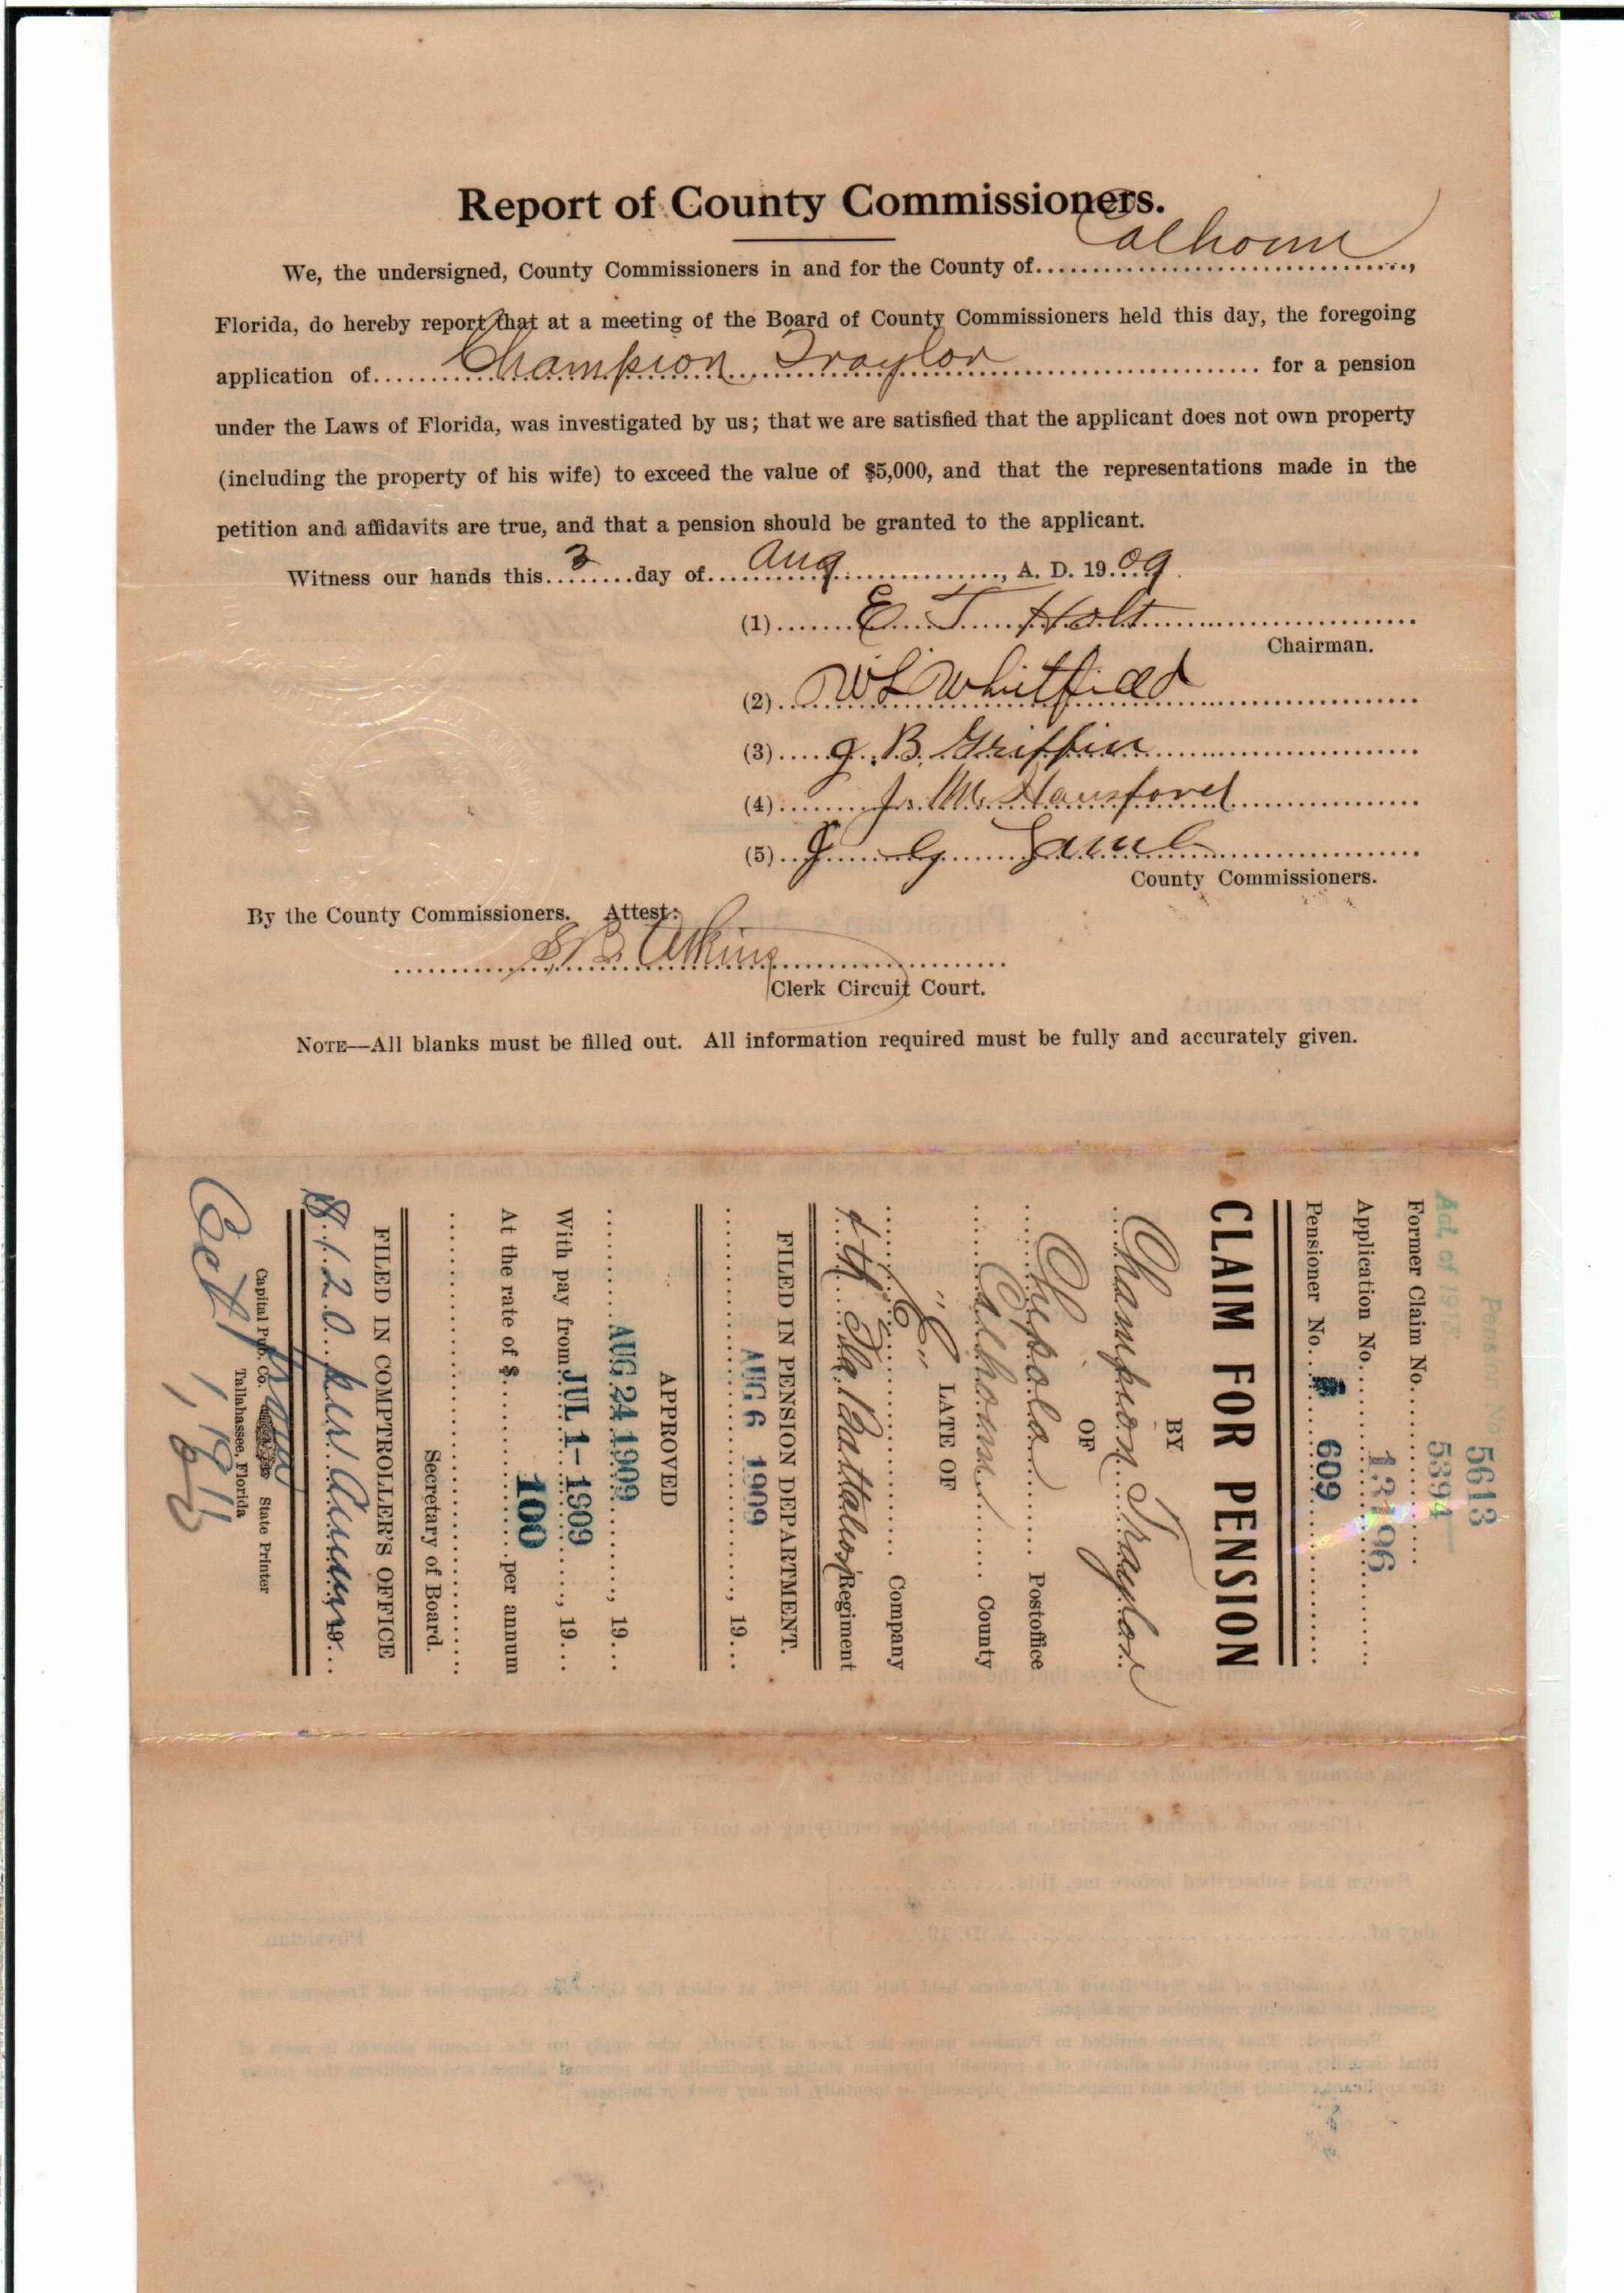 Report of County Commissioners.
We, the undersigned, County Commissioners in and for the County of Calhoun,
Florida, do hereby report that at a meeting of the Board of County Commissioners held this day, the foregoing
application of Champion Traylor for a pension
under the Laws of Florida, was investigated by us; that we are satisfied that the applicant does not own property
(including the property of his wife) to exceed the value of $5,000, and that the representations made in the
petition and affidavits are true, and that a pension should be granted to the applicant.
Witness our hands this 3 day of Aug, A. D. 1909.
(1) E. T. Holt
Chairman.
(2) W L Whitfield
(3) J. B. Griffin
(4) J. M. Hansford
(5) J G Lamb
County Commissioners.
By the County Commissioners. Attest:
Atkins
Clerk Circuit Court.
NOTE—All blanks must be filled out. All information required must be fully and accurately given.
Pension No 5613
Act of 1915
Former Claim No. 5394
Application No. 13196
Pensioner No. 609
CLAIM FOR PENSION
BY
Champion Traylor
OF
Chipola Postoffice
Calhoun County
LATE OF
"E" Company
Fla. Battalion Regiment
FILED IN PENSION DEPARTMENT.
AUG 6 1909, 19
APPROVED
AUG 24 1909, 19
With pay from JUL 1- 1909, 19
At the rate of $ 100 per annum
Secretary of Board.
FILED IN COMPTROLLER'S OFFICE
$120 per Annum 19
Capital Pub. Co. State Printer
Tallahassee, Florida
Oct